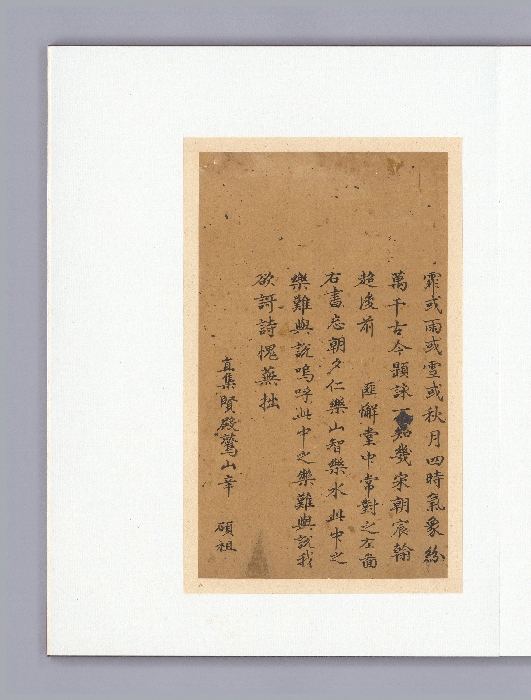 霏或雨或雪或秋月四時氣象紛
萬千古今題詠不知幾宋朝宸翰
超後前 匪懈堂中常對之左圖
右書忘朝夕仁樂山智樂水此中之
樂難與說嗚呼此中之樂難與說我
欲哥詩愧蕪拙
直集賢殿鷲山辛 碩祖